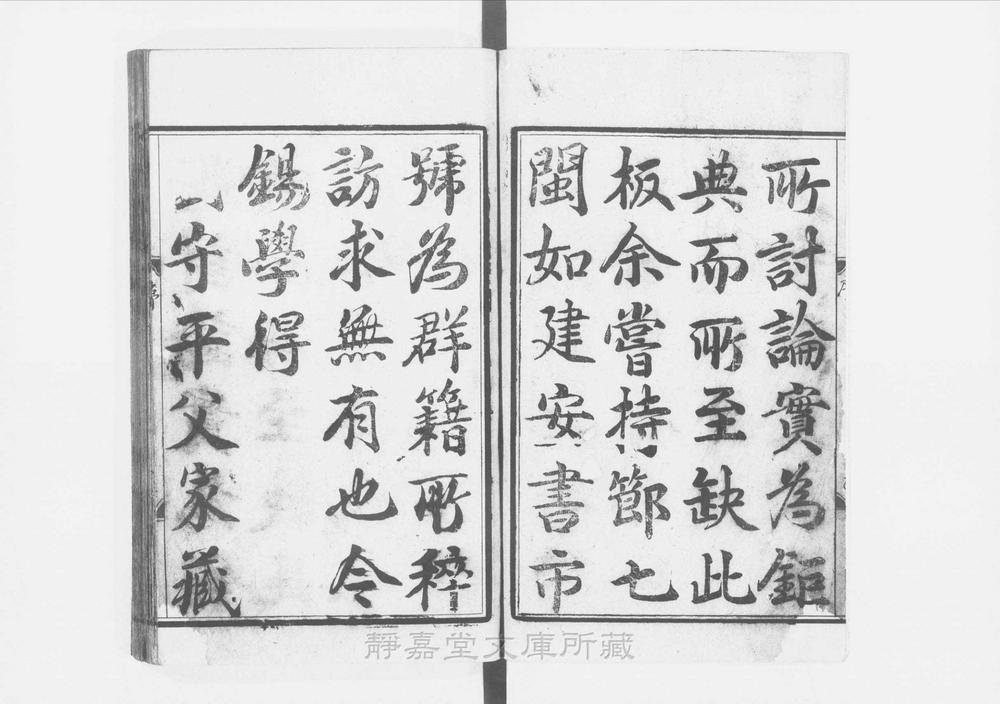 所討論實為鉅
典而所至缺此
板余嘗持節七
閩如建安書市
號為群籍所稡
訪求無有也令
錫學得
守平父家藏
靜嘉堂文庫所藏